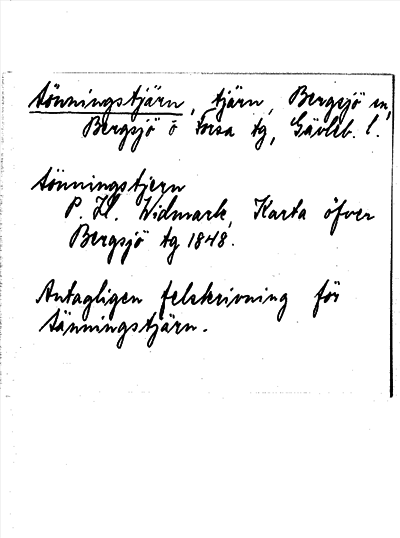 Tönningstjärn, tjärn, Bergsjö sn,
Bergsjö o Forsa tg, Gävleb. l.
Tönningstjern
P. H. Widmark, Karta öfver
Bergsjö tg 1848.
Antagligen felskrivning för
Tänningstjärn.